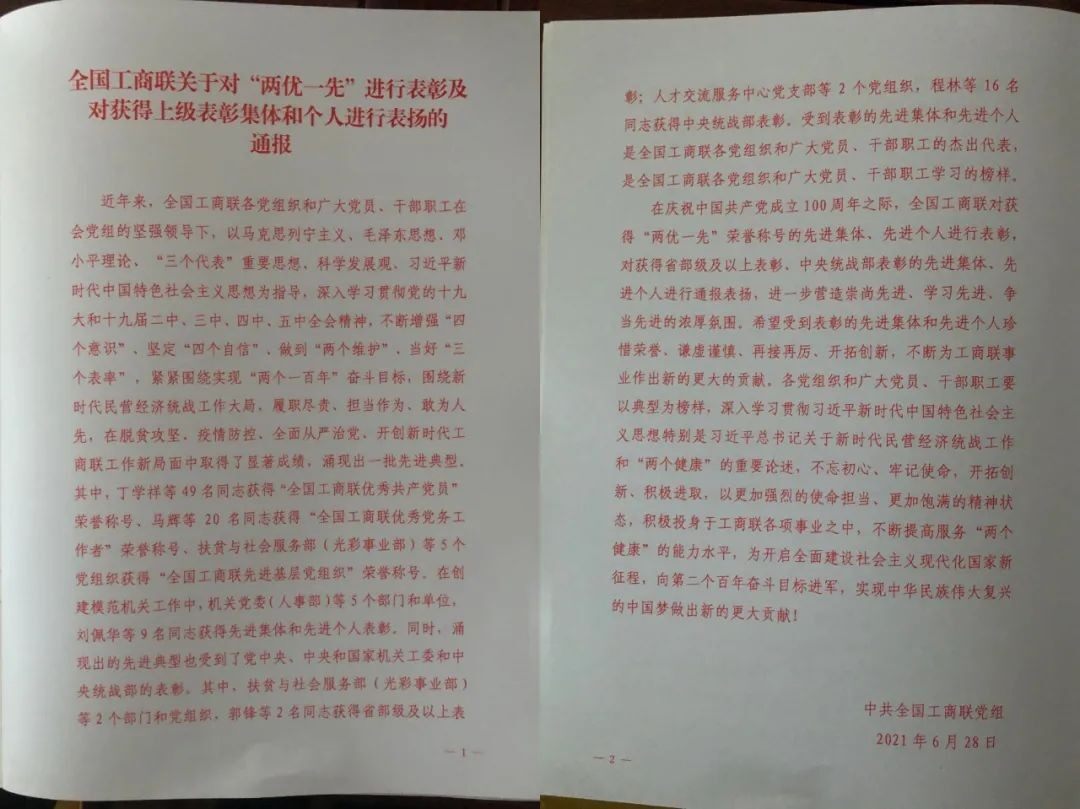 全国工商联关于对“两优一先”进行表彰及
对获得上级表彰集体和个人进行表扬的
通报
近年来，全国工商联各党组织和广大党员、干部职工在
会党组的坚强领导下，以马克思列宁主义、毛泽东思想、邓
小平理论、“三个代表”重要思想、科学发展观、习近平新
时代中国特色社会主义思想为指导，深入学习贯彻党的十九
大和十九届二中、三中、四中、五中全会精神，不断增强“四
个意识”、坚定“四个自信”、做到“两个维护”、当好“三
个表率”，紧紧围绕实现“两个一百年”奋斗目标，围绕新
时代民营经济统战工作大局，履职尽责、担当作为、敢为人
先，在脱贫攻坚、疫情防控、全面从严治党、开创新时代工
商联工作新局面中取得了显著成绩，涌现出一批先进典型。
其中，丁学祥等49名同志获得“全国工商联优秀共产党员”
荣誉称号、马辉等 20 名同志获得“全国工商联优秀党务工
作者”荣誉称号、扶贫与社会服务部（光彩事业部）等5个
党组织获得“全国工商联先进基层党组织”荣誉称号。在创
建模范机关工作中，机关党委（人事部）等5个部门和单位，
刘佩华等9名同志获得先进集体和先进个人表彰。同时，涌
现出的先进典型也受到了党中央、中央和国家机关工委和中
央统战部的表彰。其中、扶贫与社会服务部（光彩事业部）
等2个部门和党组织，郭锋等2名同志获得省部级及以上表
— 1 —
彰；人才交流服务中心党支部等 2 个党组织，程林等 16 名
同志获得中央统战部表彰。受到表彰的先进集体和先进个人
是全国工商联各党组织和广大党员、干部职工的杰出代表，
是全国工商联各党组织和广大党员、干部职工学习的榜样。
在庆祝中国共产党成立100周年之际，全国工商联对获
得“两优一先”荣誉称号的先进集体、先进个人进行表彰，
对获得省部级及以上表彰、中央统战部表彰的先进集体、先
进个人进行通报表扬，进一步营造崇尚先进、学习先进、争
当先进的浓厚氛围。希望受到表彰的先进集体和先进个人珍
惜荣誉、谦虚谨慎、再接再厉、开拓创新，不断为工商联事
业作出新的更大的贡献。各党组织和广大党员、干部职工要
以典型为榜样，深入学习贯彻习近平新时代中国特色社会主
义思想特别是习近平总书记关于新时代民营经济统战工作
和“两个健康”的重要论述，不忘初心、牢记使命，开拓创
新、积极进取，以更加强烈的使命担当、更加饱满的精神状
态，积极投身于工商联各项事业之中，不断提高服务“两个
健康”的能力水平，为开启全面建设社会主义现代化国家新
征程，向第二个百年奋斗目标进军，实现中华民族伟大复兴
的中国梦做出新的更大贡献！
中共全国工商联党组
2021 年 6 月 28 日
— 2 —